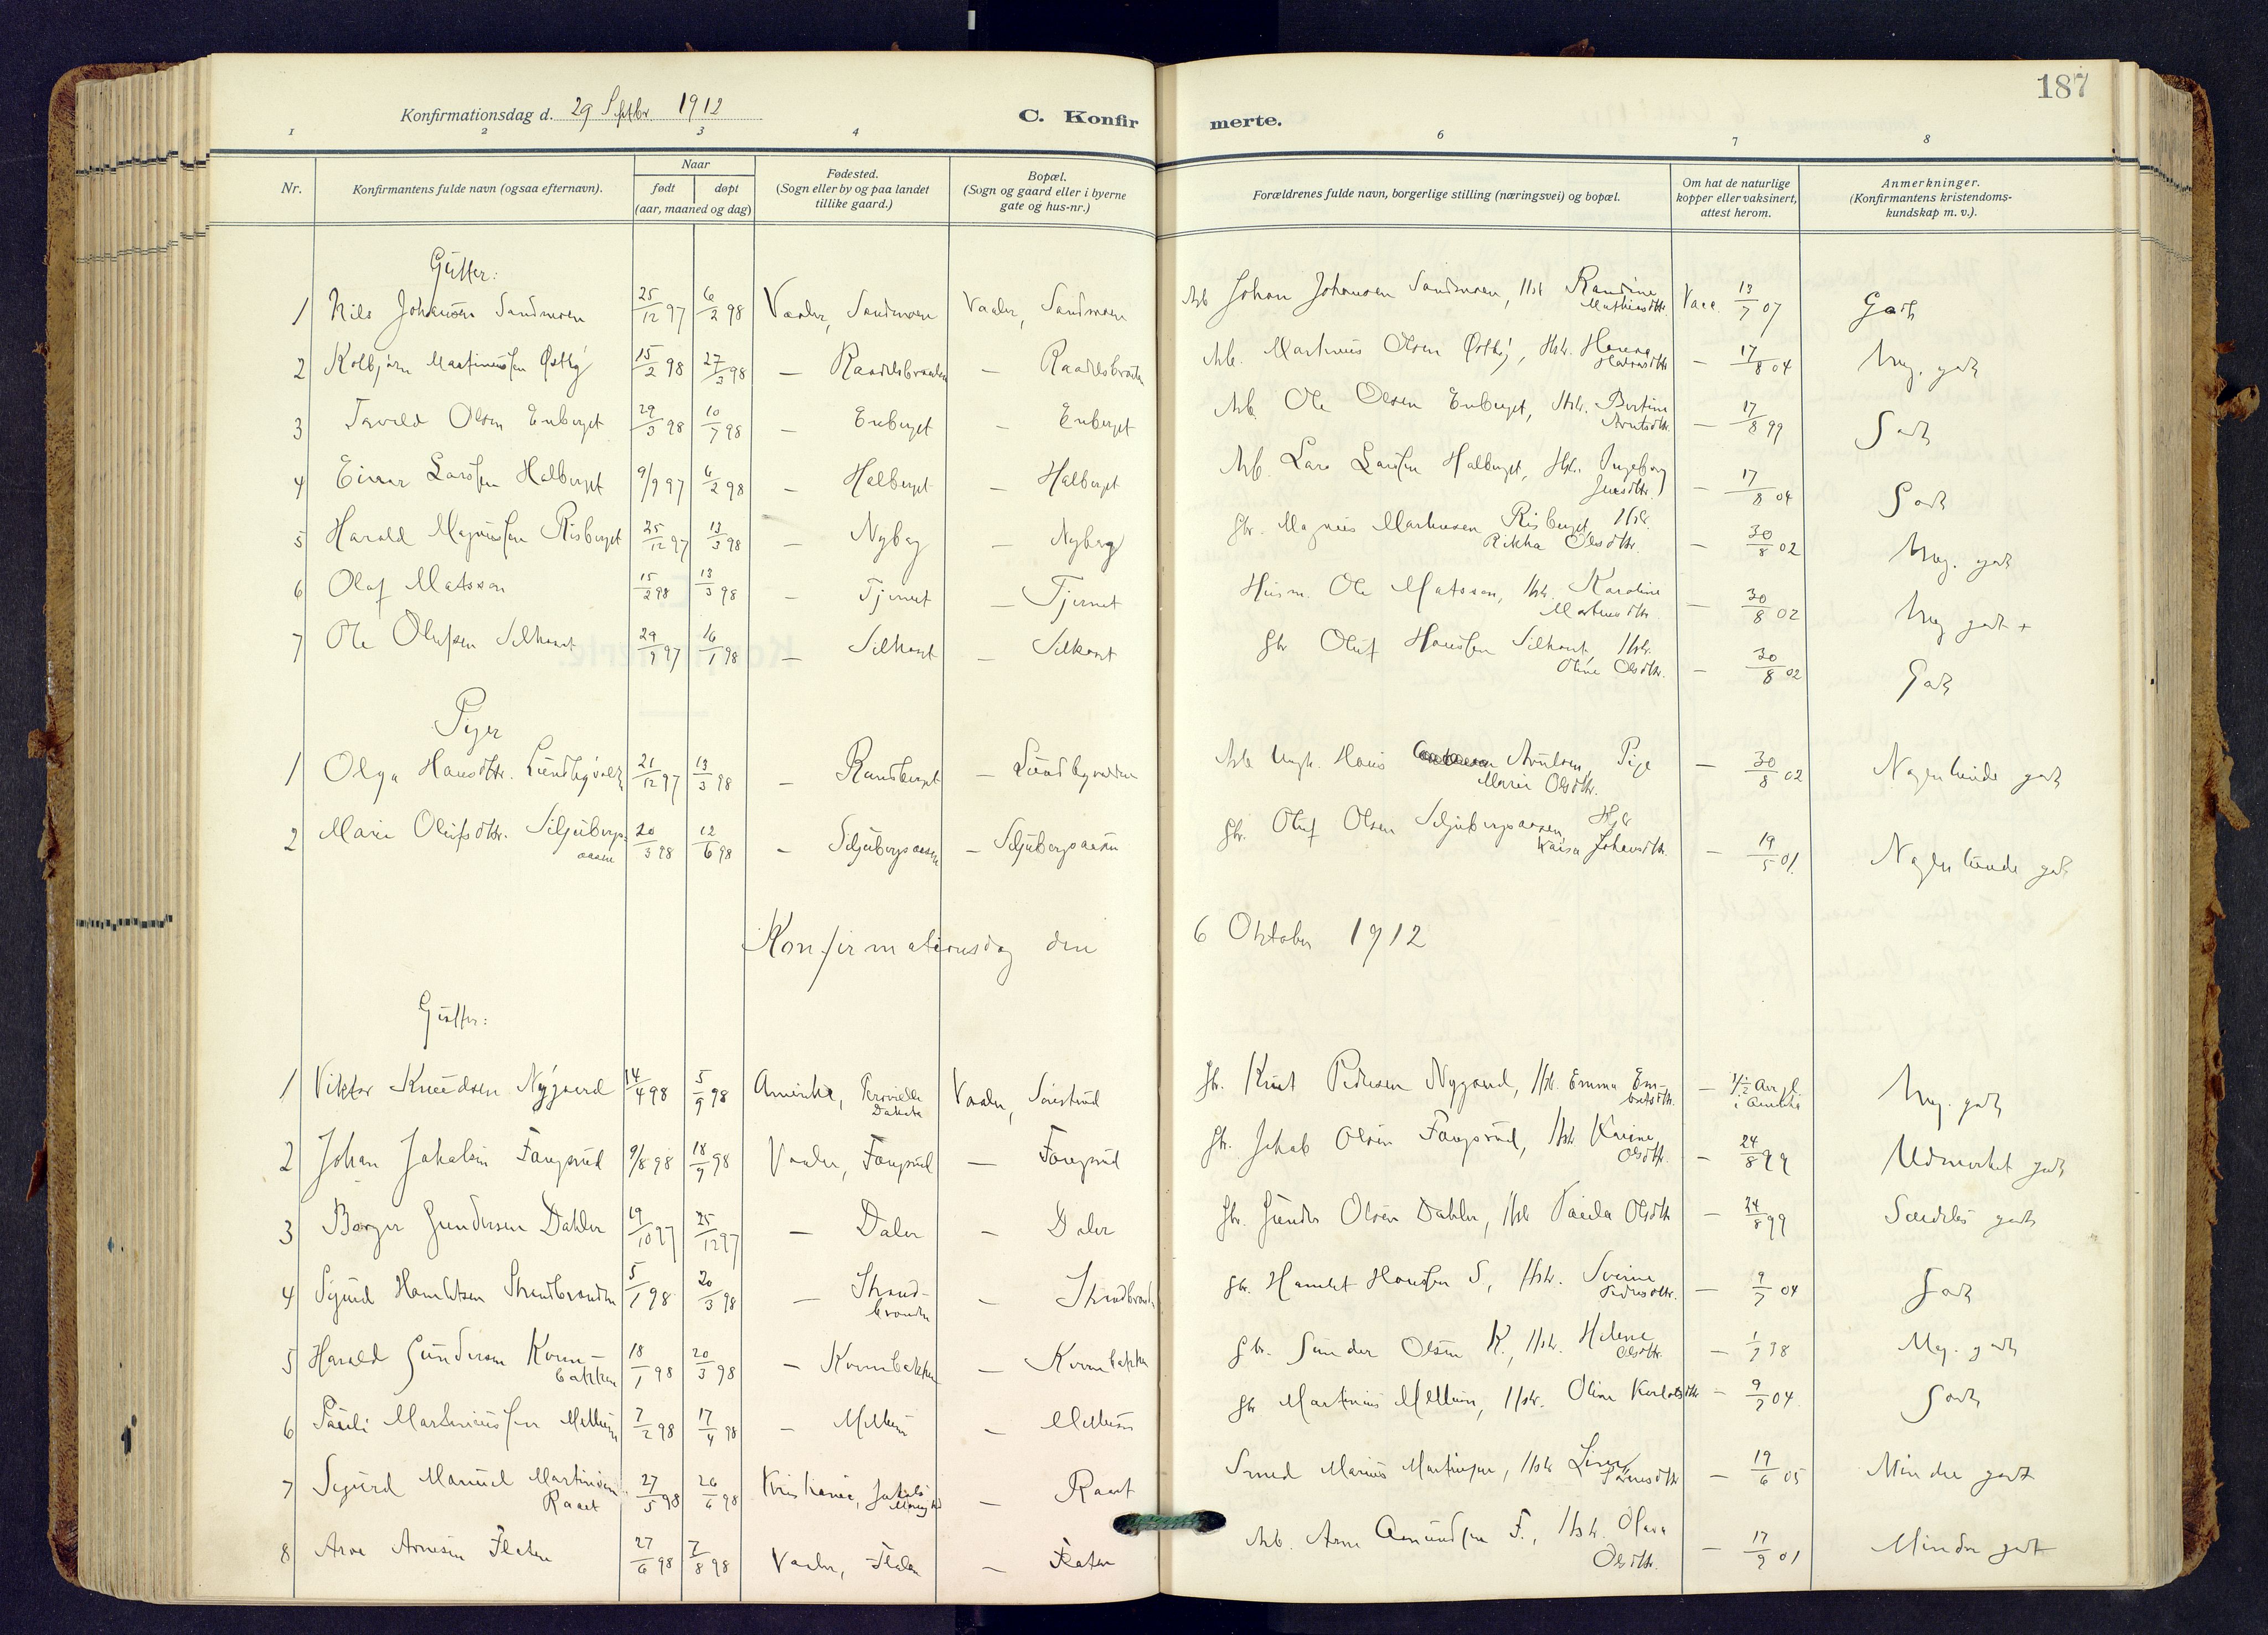 187
Konfirmationsdag d. 29 Septbr. 1912
C. Konfirmerte.
1 2 3 4 6 7 8
Nr. Konfirmantens fulde navn (ogsaa efternavn). Naar født døpt (aar, maaned og dag) Fødested. (Sogn eller by og paa landet tillike gaard.) Bopæl. (Sogn og gaard eller i byerne gate og hus-nr.) Forældrenes fulde navn, borgerlige stilling (næringsvei) og bopæl. Om hat de naturlige kopper eller vaksinert, attest herom. Anmerkninger. (Konfirmantens kristendomskundskap m. v.).
Gutter:
1 Nils Johansen Sandmoen 25/12 97 6/2 98 Vaaler, Sandmoen Vaaler, Sandmoen Arb Johan Johansen Sandmoen, Hstr Randine Mathiasdtr. Vacc. 13/7 07 Godt
2 Kolbjørn Martinussen Østby 15/2 98 27/3 98 — Raadelsbraaten — Raadelsbraaten Arb. Martinus Olsen Østby, Hstr. — 17/8 04 Meg. godt
3 Tarald Olsen Enberget 29/3 98 10/7 98 — Enberget — Enberget Arb Ole Olsen Enberget, Hstr. Bertine Arntsdtr. — 17/8 99 Godt
4 Einar Larssen Halberget 9/9 97 6/2 98 — Halberget — Halberget Arb. Lars Larssen Halberget, Hstr. Ingeborg Jensdtr. — 17/8 04 Godt
5 Harald Magnussen Risberget 25/12 97 13/3 98 — Nyberg — Nyberg Gbr. Magnus Martinsen Risberget, Hstr. Rikka Olsdtr. — 30/8 02 Meg. godt
6 Olaf Matsson 15/2 98 13/3 98 — Tjernet — Tjernet Husm. Ole Matsson, Hstr. Karoline Martinsdtr. — 30/8 02 Meg godt +
7 Ole Olufsen Silkoset 29/9 97 16/1 98 — Silkoset — Silkoset Gbr Oluf Hanssen Silkoset, Hstr. Oline Olsdtr. — 30/8 02 Godt
Piger
1 Olga Hansdtr. Lundbyvold 21/12 97 13/3 98 — Randberget — Arb Ungk. Hans Arntsen, Pige Marie Olsdtr. — 30/8 02 Nogenlunde godt
2 Marie Olufsdtr. Siljubergsaasen 20/3 98 12/6 98 — Siljubergsaasen — Siljubergsaasen Gbr. Oluf Olsen Siljubergsaasen, Hstr Kaisa Johansdtr. — 19/5 01. Nogenlunde godt
Konfirmationsdag den 6 Oktober 1912
Gutter:
1 Viktor Knudsen Nygaard 14/4 98 5/9 98 Amerika, Dakota Vaaler, Gbr. Knut Pedersen Nygaard, Hstr. Emma Embretsdtr. — i Amerika Meg. godt
2 Johan Jakobsen Fangsrud 9/8 98 18/9 98 Vaaler, Fangsrud — Fangsrud Gbr. Jakob Olsen Fangsrud, Hstr Karine Olsdtr. — 24/8 99 Udmerket godt
3 Borger Gundersen Dahler 19/10 97 25/12 97 — Daler — Daler Gbr. Gunder Olsen Dahler, Hstr Paula Olsdtr — 24/8 99 Særdeles godt
4 Sigurd Hamletsen Strandbraaten 5/1 98 20/3 98 — Strandbraaten — Strandbraaten Gbr. Hamlet Hanssen S., Hstr. Sverine Pedersdtr. — 9/7 04 Godt
5 Harald Gundersen Kvernbakken 18/1 98 20/3 98 — Kvernbakken — Kvernbakken Gbr. Gunder Olsen K., Hstr. Helene Olsdtr. — 1/7 98 Meg. godt
6 Pauli Martiniussen Mellum 7/2 98 17/4 98 — Mellum — Mellum Gbr Martinius Mellum, Hstr. Oline Karlotsdtr — 9/7 04. Godt
7 Sigurd Manuel Martinsen Raaet 27/5 98 26/6 98 Kristiania, Jakobs Menighed — Raaet Smed Marius Martinsen, Hstr — 19/6 05 Mindre godt
8 Arve Arnesen Flaten 27/6 98 7/8 98 Vaaler, Flaten — Flaten Arb. Arne Amundsen F., Hstr. Olava Olsdtr. — 17/9 01 Mindre godt